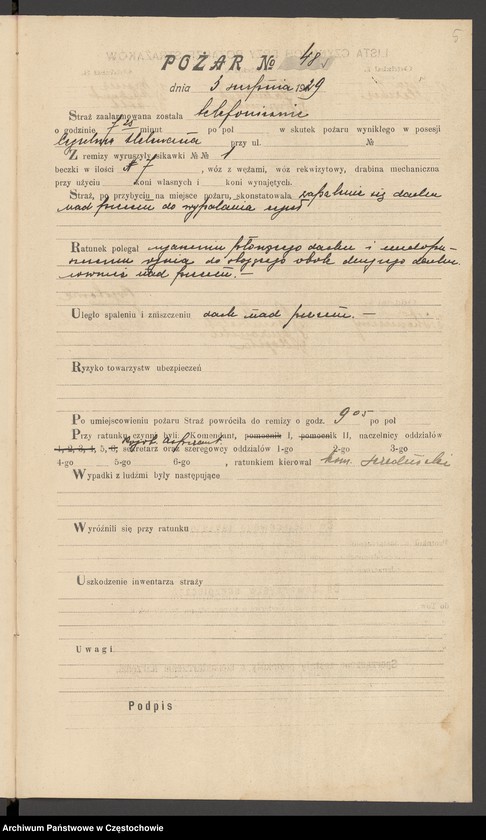 5
POŻAR № 48.
dnia 3 sierpnia 1929
Straż zaalarmowana została telefonicznie
o godzinie 7 25 minut po poł w skutek pożaru wynikłego w posesji
Cegielnia Helmana przy ul. №
Z remizy wyruszyły sikawki № № 1
beczki w ilości № 7, wóz z wężami, wóz rekwizytowy, drabina mechaniczna
przy użyciu koni własnych i koni wynajętych.
Straż, po przybyciu na miejsce pożaru, skonstatowała zapalenie się dachu
nad piecem do wypalania cegieł
Ratunek polegał ugaszeniu płonącego dachu i
ognia do stojącego obok drugiego dachu
również nad piecem. —
Uległo spaleniu i zniszczeniu dach nad piecem. —
Ryzyko towarzystw ubezpieczeń
Po umiejscowieniu pożaru Straż powróciła do remizy o godz. 9 05 po poł
Przy ratunku czynni byli: Komendant, pomocnik I, pomocnik II, naczelnicy oddziałów
1, 2, 3, 4, 5, 6, sekretarz oraz szeregowcy oddziałów 1-go 2-go 3-go
4-go 5-go 6-go , ratunkiem kierował kom.
Wypadki z ludźmi były następujące
Wyróżnili się przy ratunku
Uszkodzenie inwentarza straży
Uwagi
Podpis
Archiwum Państwowe w Częstochowie